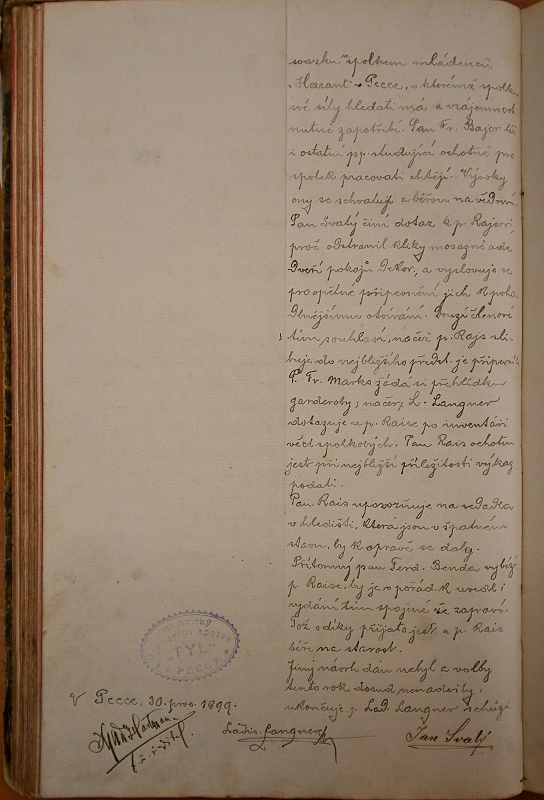 svazku spolkem mládenců
"Harant" v Pecce, v kterémž spolku
své síly hledati má a vzájemnosti
nutně zapotřebí. Pan Fr. Bajer též
i ostatní pp. studující ochotně pro
spolek pracovati chtějí. Výroky
ony se schvalují a běrou na vědomí.
Pan Svatý činí dotaz k p. Rajsovi,
proč odstranil kliky mosazné ode
Dveří pokojů Dekor., a vyslovuje se
pro opětné připevnění jich k poho
dlnějšímu otvírání. Druzí členové
tím souhlasí, načež p. Rajs sli-
buje do nejbližšího předst. je připevniti
P. Fr. Marks žádá si přehlídku
garderoby; načež L. Langner
dotazuje se p. Raise po inventáři
věcí spolkových. Pan Rais ochoten
jest při nejbližší příležitosti výkaz
podati.
Pan Rais upozorňuje na sedadla
v hledišti, která jsou v špatném
stavu, by k opravě se daly.
Přítomný pan Ferd. Benda vybízí
p. Raise, by je v pořádek uvedl i
vydání tím spojené že zapraví.
Což s díky přijato jest a p. Rais
béře na starost.
Jiný návrh dán nebyl a volby
tento rok dosud nenadešly,
ukončuje p. Lad. Langner schůzi.
spolek
"TYL"
PECCE
V Pecce, 30. pros. 1899.
Ladis. Langner
Jan Svatý